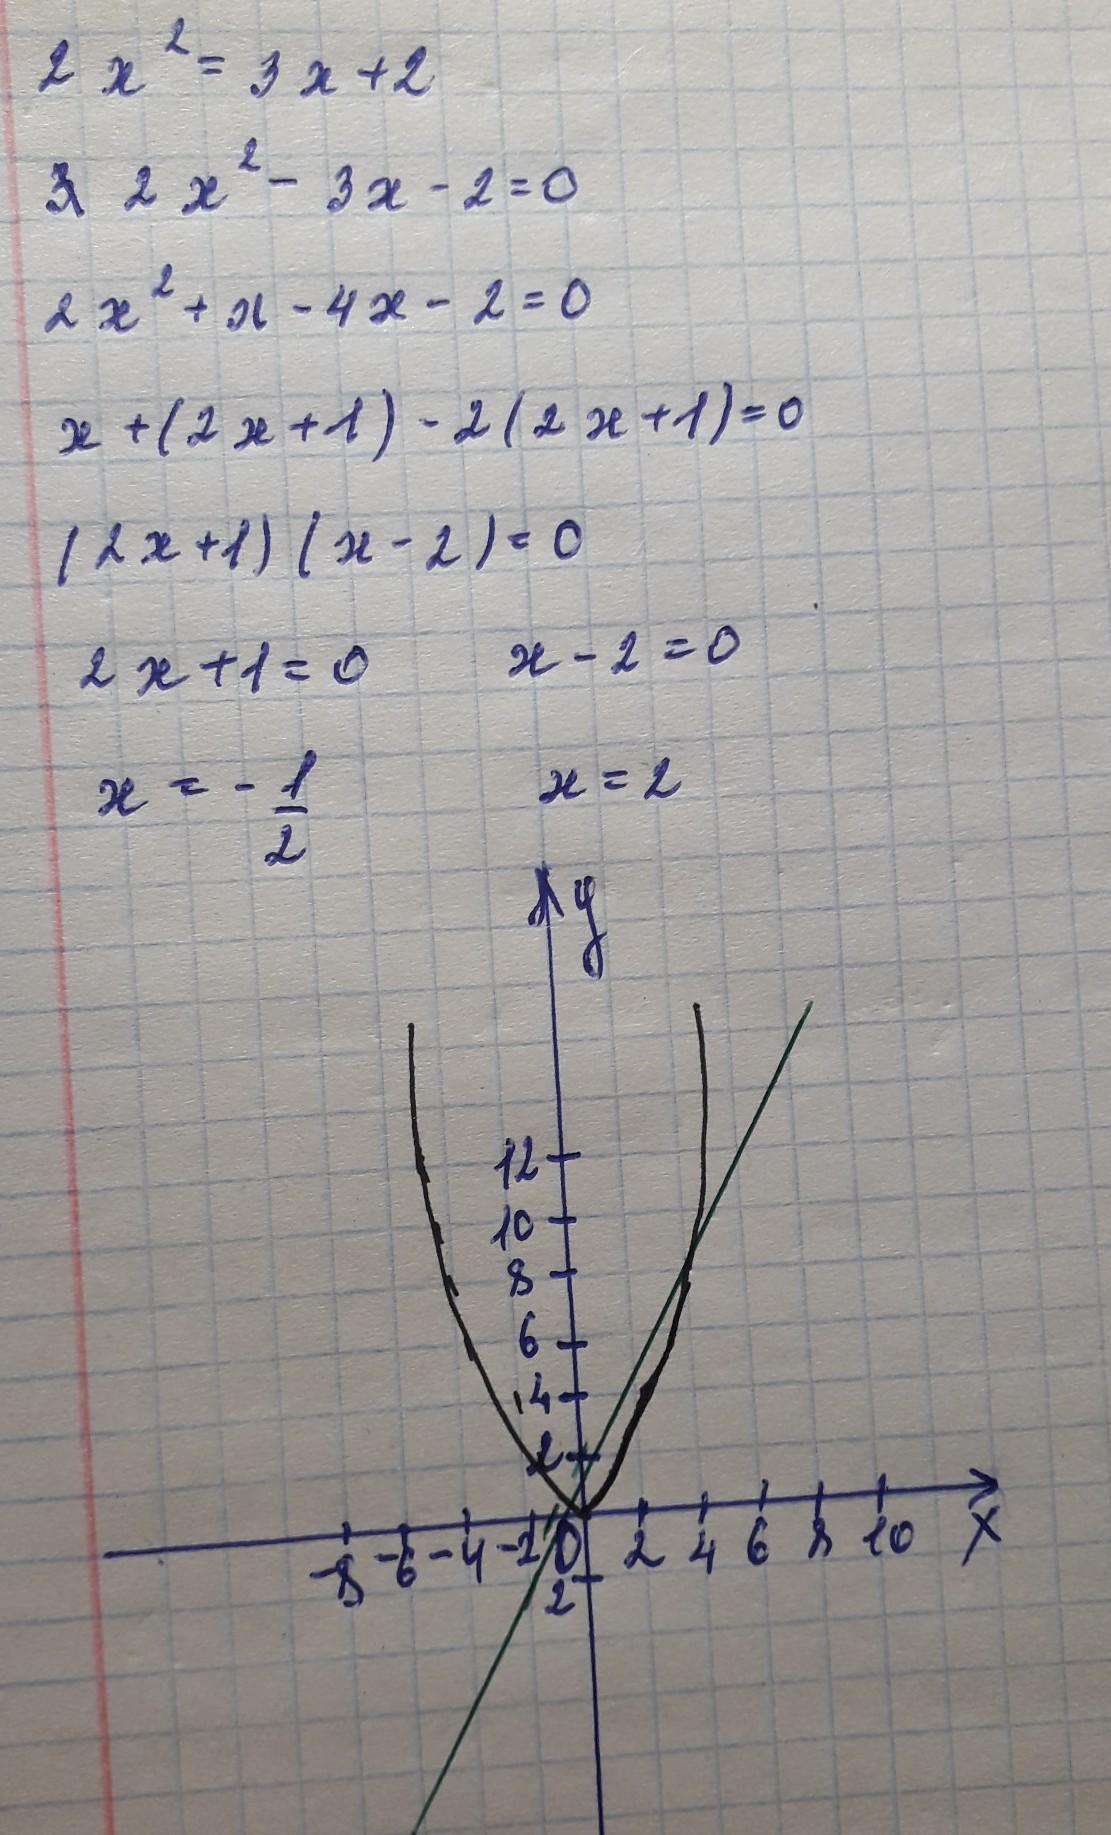 2x² = 3x+2
2x² - 3x - 2 = 0
2x² + x - 4x - 2 = 0
x + (2x+1) - 2(2x+1) = 0
(2x+1)(x-2) = 0
2x+1 = 0    x-2 = 0
x = -1/2    x = 2
y
12
10
8
6
4
2
-8 -6 -4 -2 0 2 4 6 8 10 x
2